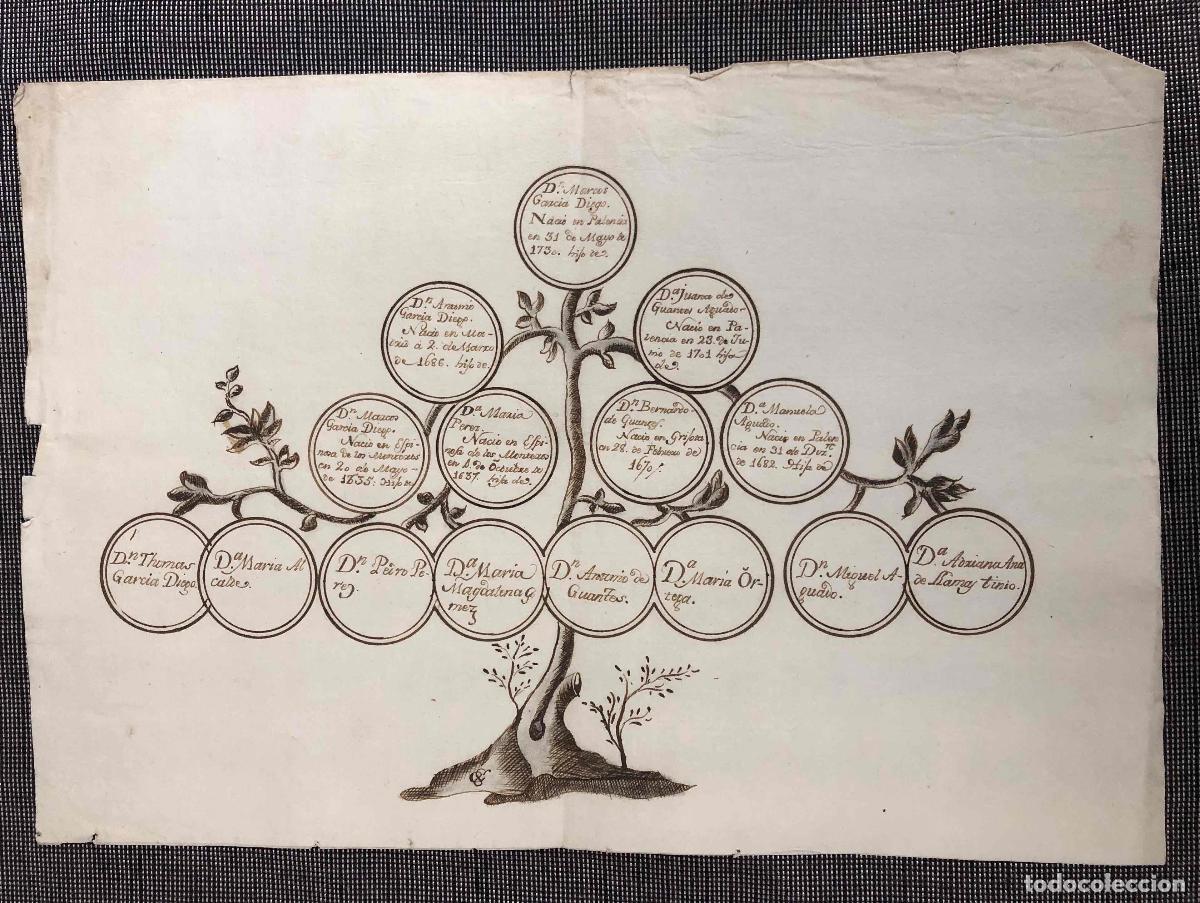 Dⁿ. Marcos
Garcia Diego.
Nacio en Palencia
en 31 de Mayo de
1730. hijo de.
Dⁿ. Antonio
Garcia Diego.
Nacio en Ma-
drid á 2. de Marzo
de 1686. hijo de.
Dª. Juana de
Guantes Aguado.
Nacio en Pa-
lencia en 23. de Ju-
nio de 1701 hija
de.
Dⁿ. Marcos
Garcia Diego.
Nacio en Espi-
nosa de los Monteros
en 20 de Mayo
de 1635. Hijo de
Dª. Maria
Perez.
Nacio en Espi-
nosa de los Monteros
en 4. de Octubre de
1637. hija de.
Dⁿ. Bernardo
de Guantes.
Nacio en Grijota
en 28. de Febrero de
1670.
Dª. Manuela
Aguado.
Nacio en Palen-
cia en 31 de Diz.ᵉ
de 1682. Hija de
Dⁿ. Thomas
Garcia Diego.
Dª. Maria Al
calde.
Dⁿ. Pedro Pe-
rez.
Dª. Maria
Magdalena Go
mez
Dⁿ. Antonio de
Guantes.
Dª. Maria Or-
tega.
Dⁿ. Miguel A-
guado.
Dª. Adriana Ana
de Llamas
todocoleccion